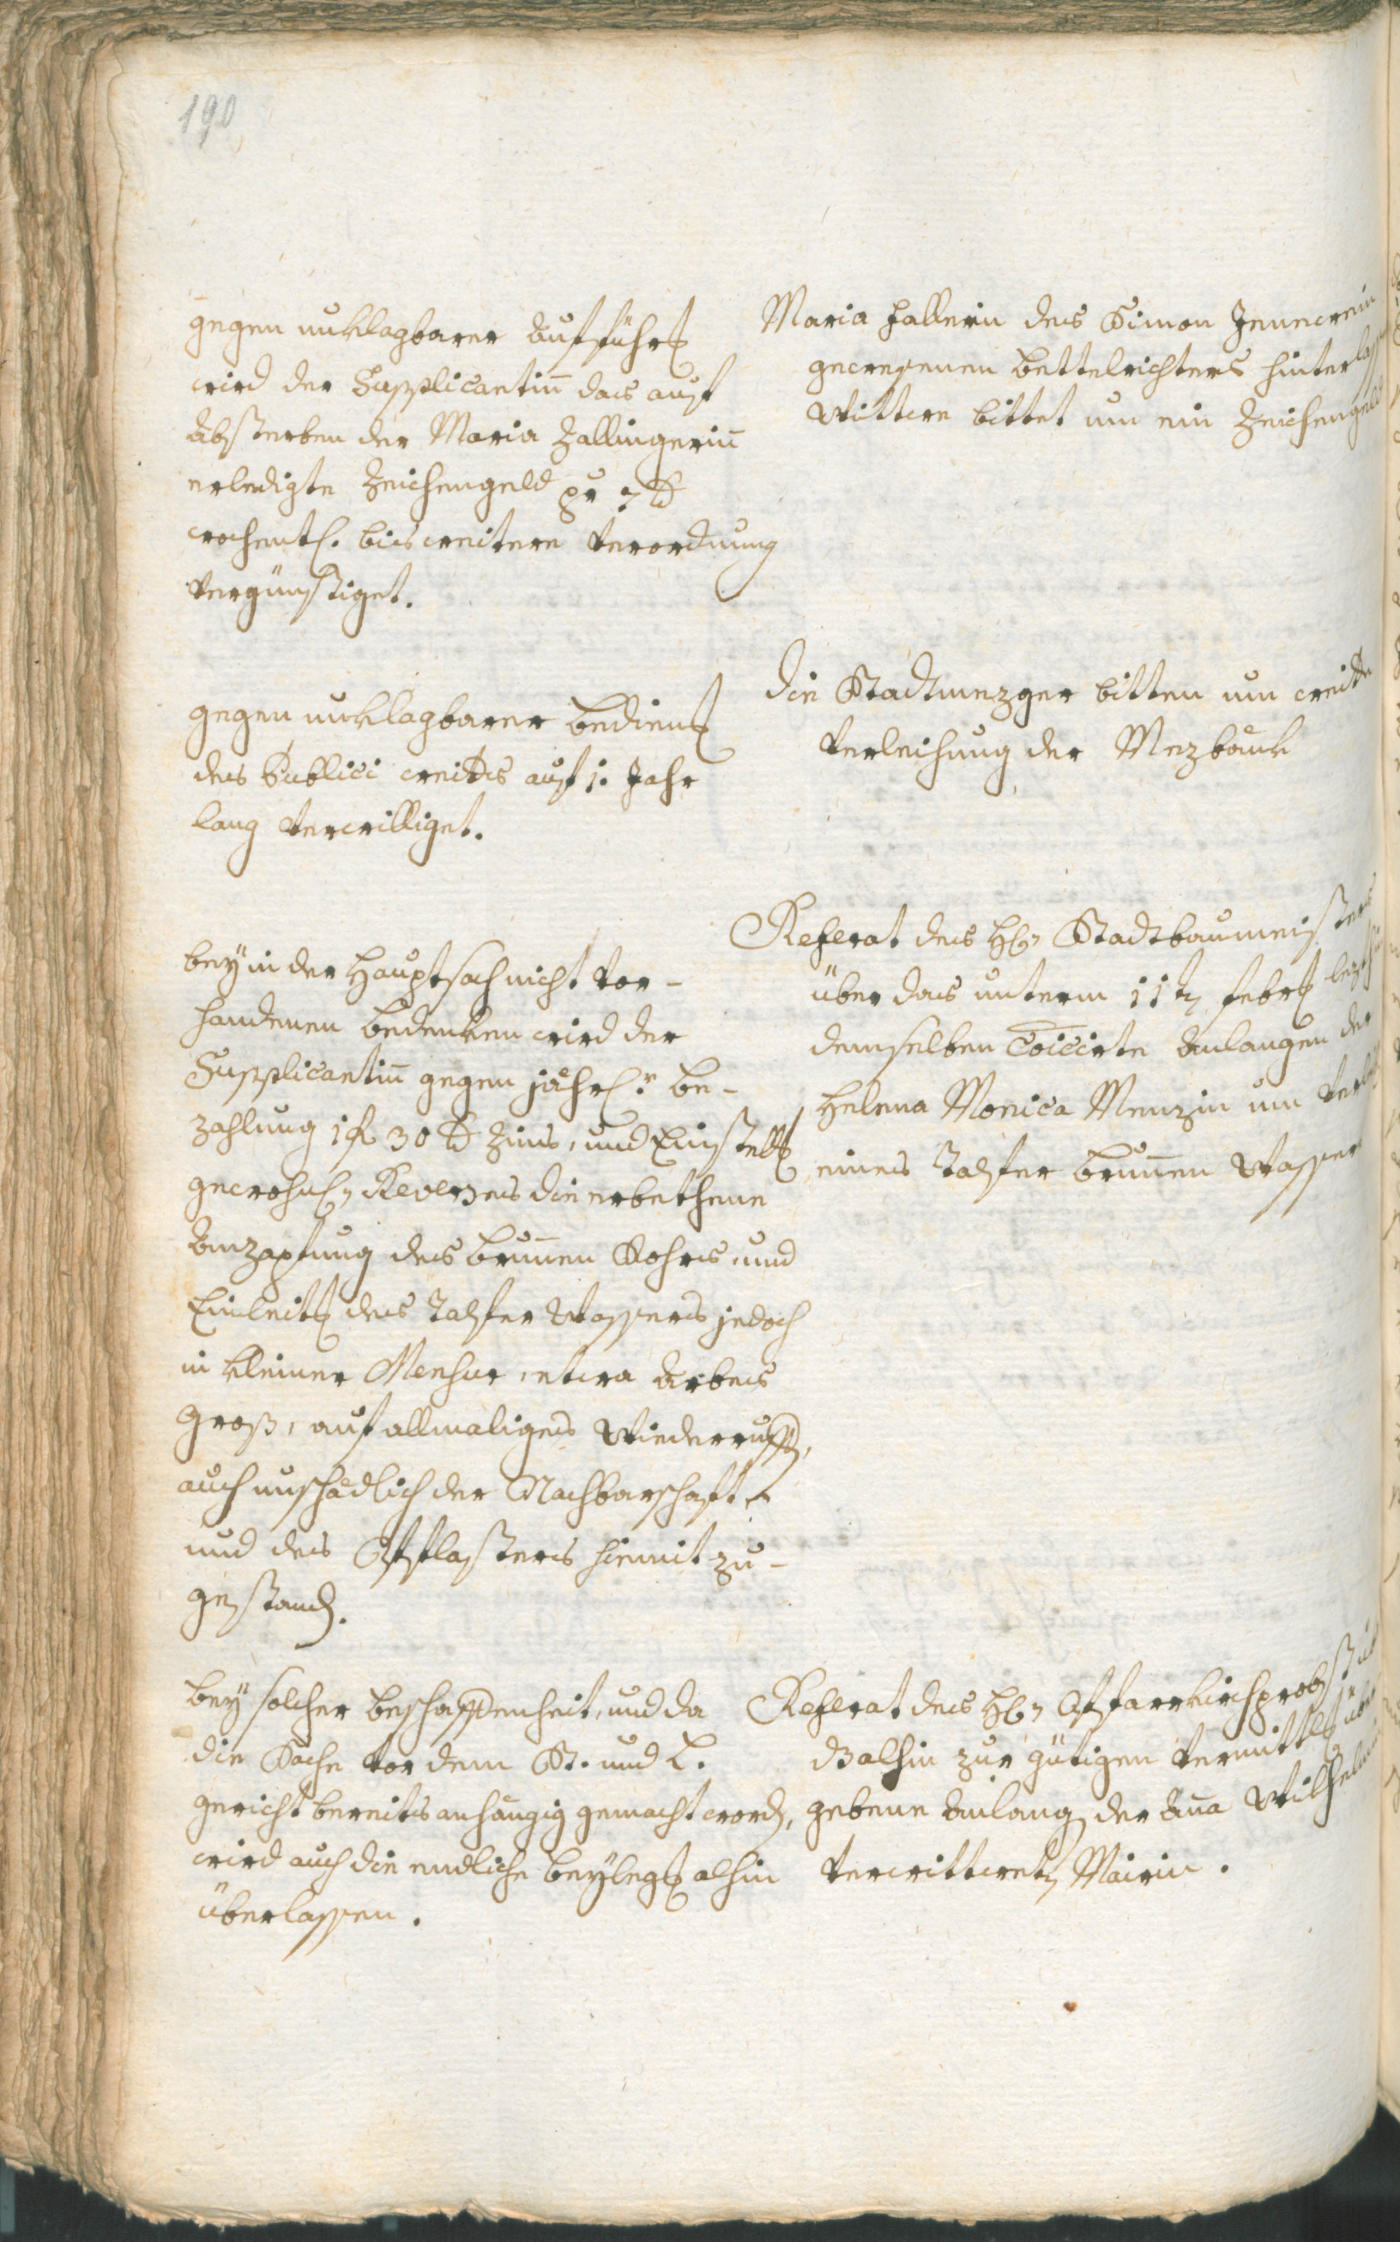 190
gegen unklagbarer Aufführ
wird der Supplicantin das auf
Absterben der Maria Zallingerin
erledigte Zeichengeld pr 7 d
wochentl. bis weitere Verordnung
vergünstiget.
Maria Hallerin des Simon
gewesenen Bettelrichters hinterlass
Wittwe bittet um ein Zeichengeld
gegen unklagbarer Bedien
des Publici weiters auf 1. Jahr
lang verwilliget.
die Stadtmezger bitten um weite
Verleihung der Mezbänk
bey in der Hauptsach nicht vor-
handenen Bedenken wird der
Supplicantin gegen jährl. Be-
zahlung 1 f 30 d Zins, und Einstell
gewohnl. Reverses die erbethene
Anzapfung des Brunnen Rohrs, und
Einleit des Talfer Wassers jedoch
in kleiner Mensur, etwa Arbes
groß, auf allmaliges Wiederruffen,
auch unschädlich der Nachbarschaft
und des Pflasters hiemit zu-
gestanden.
Referat des H. Stadtbaumeisters
über das unterm 11t. Febr lezthin
demselben coicirte Anlangen der
Helena Monica Menzin um
eines Talfer Brunnen Wasser
bey solcher Beschaffenheit, und da
die Sache vor dem St. und L.
gericht bereits anhängig gemacht word,
wird auch die endliche Beyleg alhin
überlassen.
Referat des H. Pfarrkirchprobst
alhin zur gütigen Vermittl über
gebene Anlang der Ana Wilhelm
verwittwet Mairin.